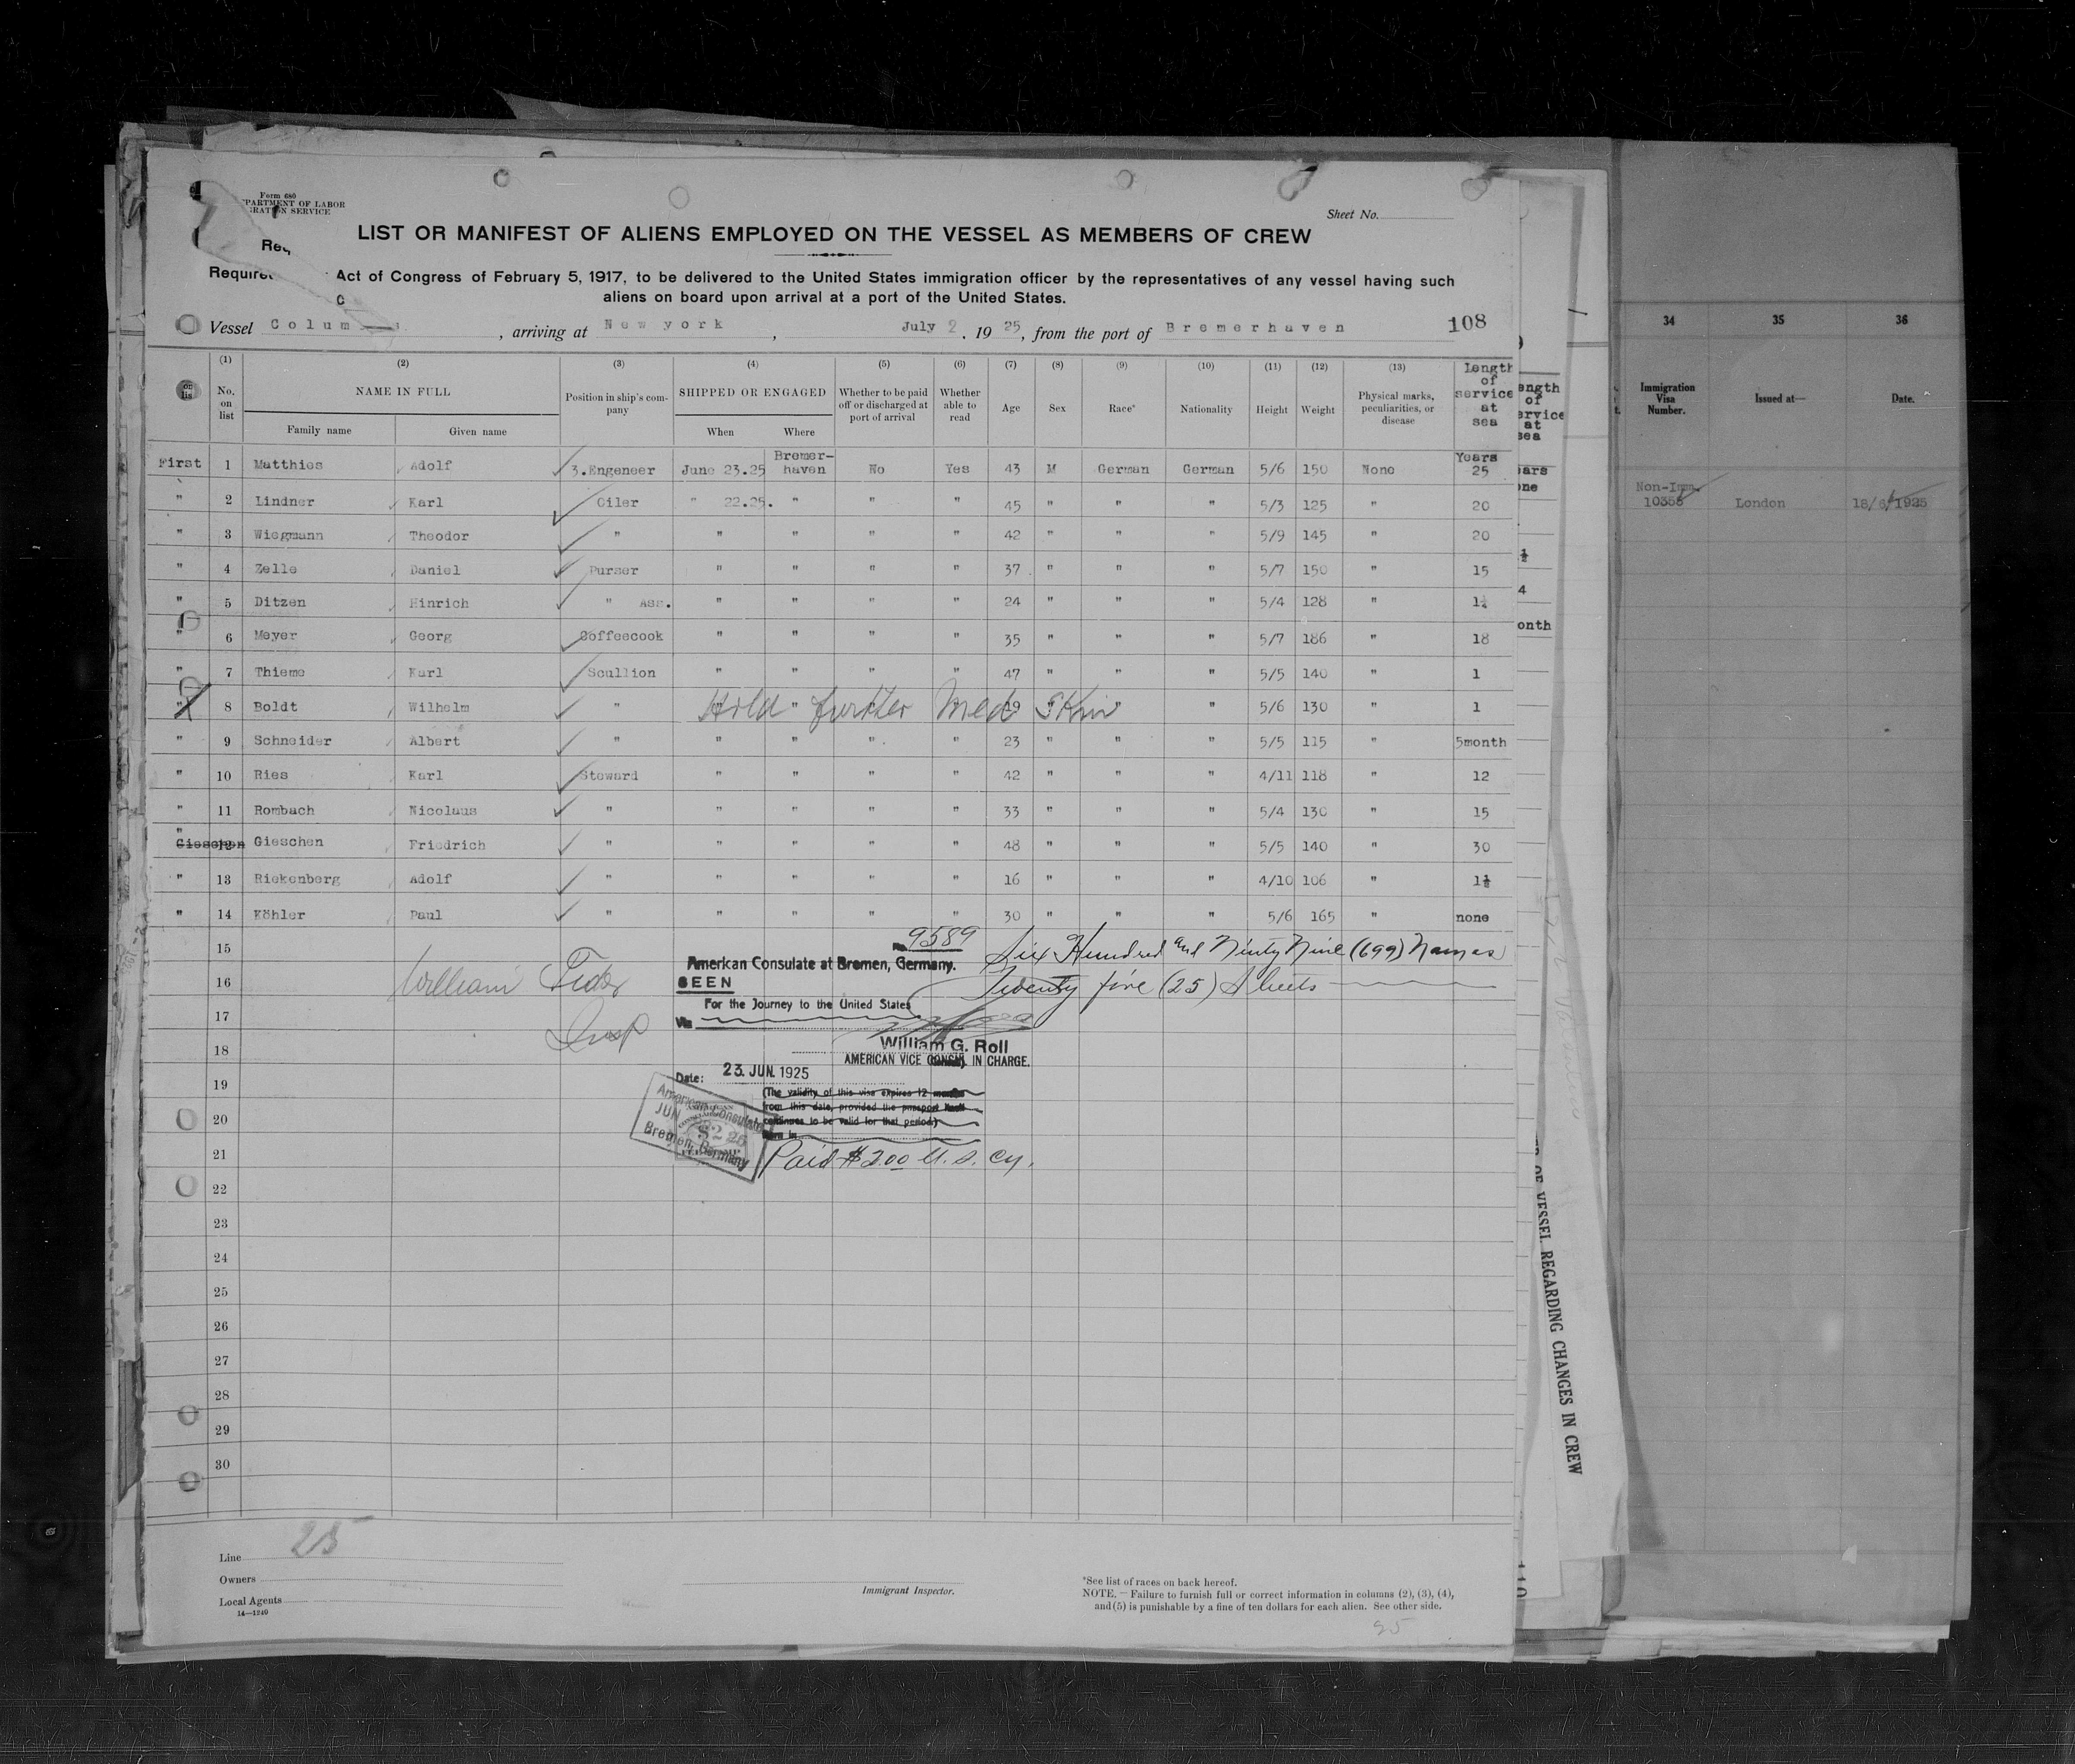 Form 680
PARTMENT OF LABOR
GRATION SERVICE
Sheet No.
LIST OR MANIFEST OF ALIENS EMPLOYED ON THE VESSEL AS MEMBERS OF CREW
Act of Congress of February 5, 1917, to be delivered to the United States immigration officer by the representatives of any vessel having such
aliens on board upon arrival at a port of the United States.
Vessel Colum , arriving at New york , July 2 . 19 25, from the port of Bremerhaven 108
(1) (2) (3) (4) (5) (6) (7) (8) (9) (10) (11) (12) (13)
No. on list NAME IN FULL Family name Given name Position in ship's company SHIPPED OR ENGAGED When Where Whether to be paid off or discharged at port of arrival Whether able to read Age Sex Race* Nationality Height Weight Physical marks, peculiarities, or disease Length of service at sea
First 1 Matthies Adolf 3.Engeneer June 23.25 Bremer-haven No Yes 43 M German German 5/6 150 None Years 25
" 2 Lindner Karl Oiler " 22.25. " " " 45 " " " 5/3 125 " 20
" 3 Wiegmann Theodor " " " " " 42 " " " 5/9 145 " 20
" 4 Zelle Daniel Purser " " " " 37 " " " 5/7 150 " 15
" 5 Ditzen Hinrich " Ass. " " " " 24 " " " 5/4 128 "
" 6 Meyer Georg Coffeecook " " " " 35 " " " 5/7 186 " 18
" 7 Thieme Karl Scullion " " " " 47 " " " 5/5 140 " 1
" 8 Boldt Wilhelm " " " " " 19 " " " 5/6 130 " 1
Hold further Med Skin
" 9 Schneider Albert " " " " " 23 " " " 5/5 115 " 5month
" 10 Ries Karl Steward " " " " 42 " " " 4/11 118 " 12
" 11 Rombach Nicolaus " " " " " 33 " " " 5/4 130 " 15
" Gieschen 12 Gieschen Friedrich " " " " " 48 " " " 5/5 140 " 30
" 13 Riekenberg Adolf " " " " " 16 " " " 4/10 106 " 1½
" 14 Köhler Paul " " " " " 30 " " " 5/6 165 " none
15
16
17
18
19
20
21
22
23
24
25
26
27
28
29
30
William
Insp
No. 9589
American Consulate at Bremen, Germany.
SEEN
For the Journey to the United States
Via
William G. Roll
AMERICAN VICE CONSUL IN CHARGE.
Date: 23. JUN. 1925
(The validity of this visa expires 12 months
from this date, provided the passport itself
continues to be valid for that period)
Six Hundred and Ninty Nine (699) Names
Twenty five (25) Sheets
American Consulate
JUN 25
Bremen, Germany
Paid $2.00 U.S. Cy.
25
Line
Owners
Local Agents
14—1240
Immigrant Inspector.
*See list of races on back hereof.
NOTE.—Failure to furnish full or correct information in columns (2), (3), (4),
and (5) is punishable by a fine of ten dollars for each alien. See other side.
25
ength
of
ervice
at
sea
ears
one
½
4
onth
OF VESSEL REGARDING CHANGES IN CREW
34 35 36
Immigration Visa Number. Issued at— Date.
Non-Imm. 10358 London 18/6/1925